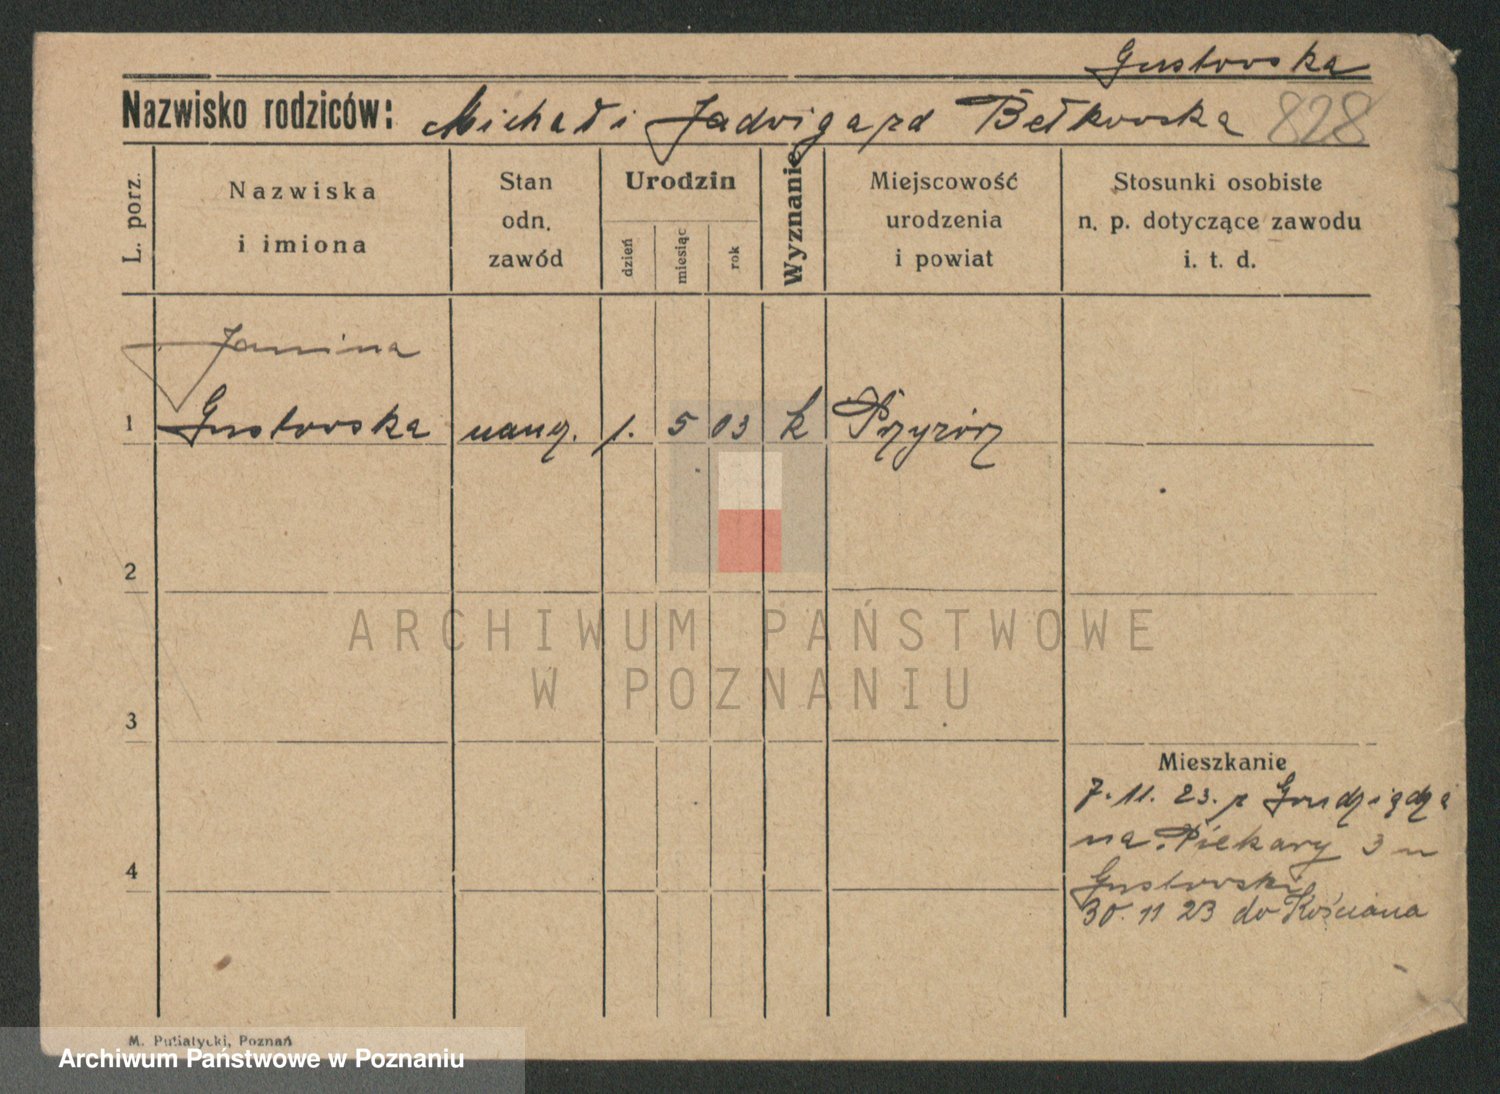 Gustowska
Nazwisko rodziców: Michał i Jadwiga zd Bełkowska 828
L. porz.
Nazwiska
i imiona
Stan
odn.
zawód
Urodzin
dzień
miesiąc
rok
Wyznanie
Miejscowość
urodzenia
i powiat
Stosunki osobiste
n. p. dotyczące zawodu
i. t. d.
Janina
1 Gustowska 1. 5 03 k
2
ARCHIWUM PAŃSTWOWE
W POZNANIU
3
Mieszkanie
7. 11. 23. z Grudziądza
na Piekary 3 u
4
Gustowski
30. 11 23 do Kościana
M. Putiatycki, Poznań
Archiwum Państwowe w Poznaniu